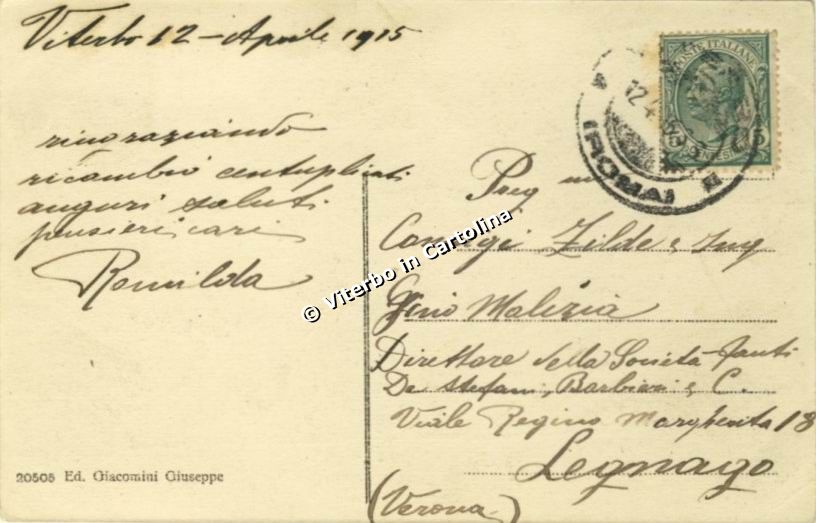 Viterbo 12 - Aprile 1915
ringraziando
ricambio centuplicati
auguri saluti
pensieri cari
Romilda
POSTE ITALIANE
(ROMA)
Preg
Coniugi Zilde e Ing
Gino Malizia
Direttore della Società
De Stefani, Barbieri e C.
Viale Regina Margherita 18
Legnago
(Verona)
20505 Ed. Giacomini Giuseppe
© Viterbo in Cartolina